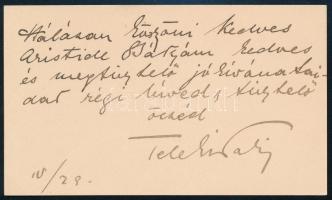 Hálásan köszöni kedves
Aristid Bátyám kedves
és megtisztelő jókívánatai-
dat régi híved, tisztelő
öcséd
Teleki Pál
IV/29.